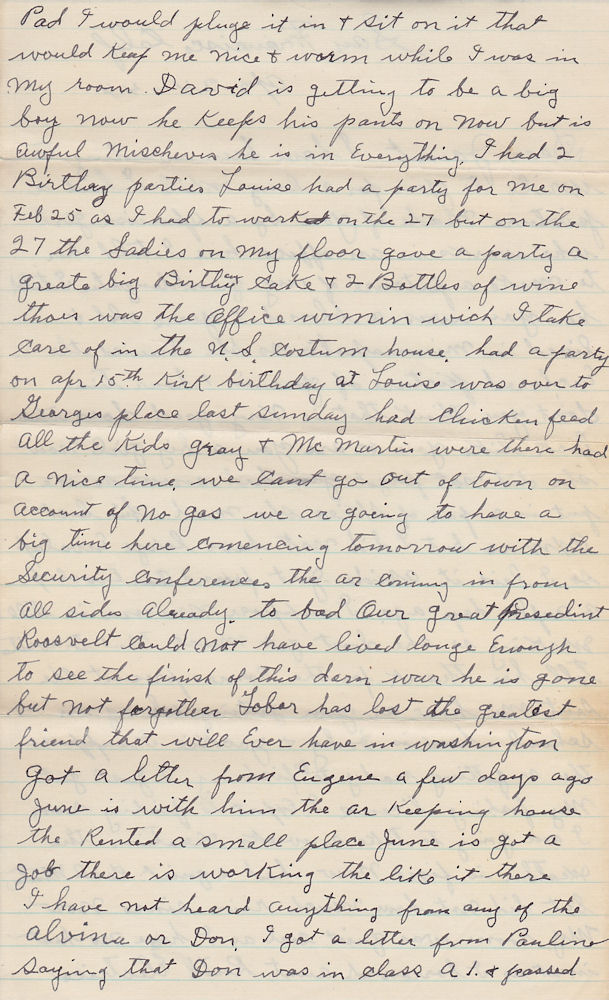 Pad I would pluge it in & sit on it that
would Keep me nice & worm while I was in
my room. David is getting to be a big
boy now he Keeps his pants on now but is
awful Mischeves he is in Everything. I had 2
Birthay parties Louise had a party for me on
Feb 25 as I had to work on the 27 but on the
27 the Ladies on my floor gave a party a
greate big Birthay Cake & 2 Bottles of wine
thoes was the Office wimin wich I take
Care of in the U.S. Costum house. had a party
on apr 15th Kirk birthday at Louise was over to
Georges place last sunday had Chicken feed
all the Kids gray & Mc Martin were there had
a nice time. we Cant go out of town on
account of no gas we ar going to have a
big time here comencing tomorrow with the
Security Conferences the ar Coming in from
all sides already. to bad Our great Presedint
Roosvelt Could not have lived longe Enough
to see the finish of this darn war he is gone
but not forgotten Labor has lost the greatest
friend that will Ever have in washington
got a letter from Eugene a few days ago
June is with him the ar Keeping house
the Rented a small place June is got a
Job there is working the like it there
I have not heard anything from any of the
alvina or Don. I got a letter from Pauline
saying that Don was in Class A 1. & passed